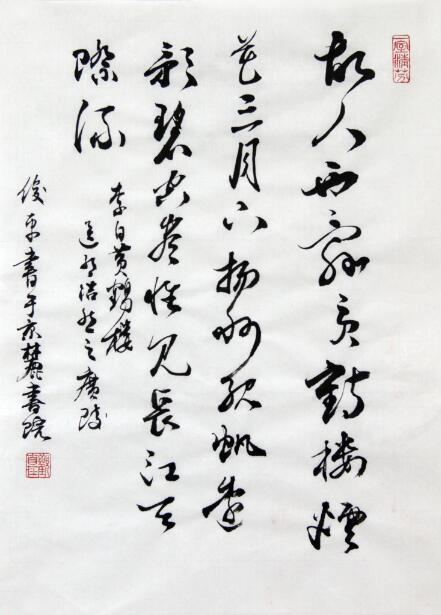 故人西辭黄鶴楼煙
花三月下揚州孤帆遠
影碧空盡惟見長江天
際流
李白黄鶴楼
送孟浩然之廣陵
俊東書于京麓書院